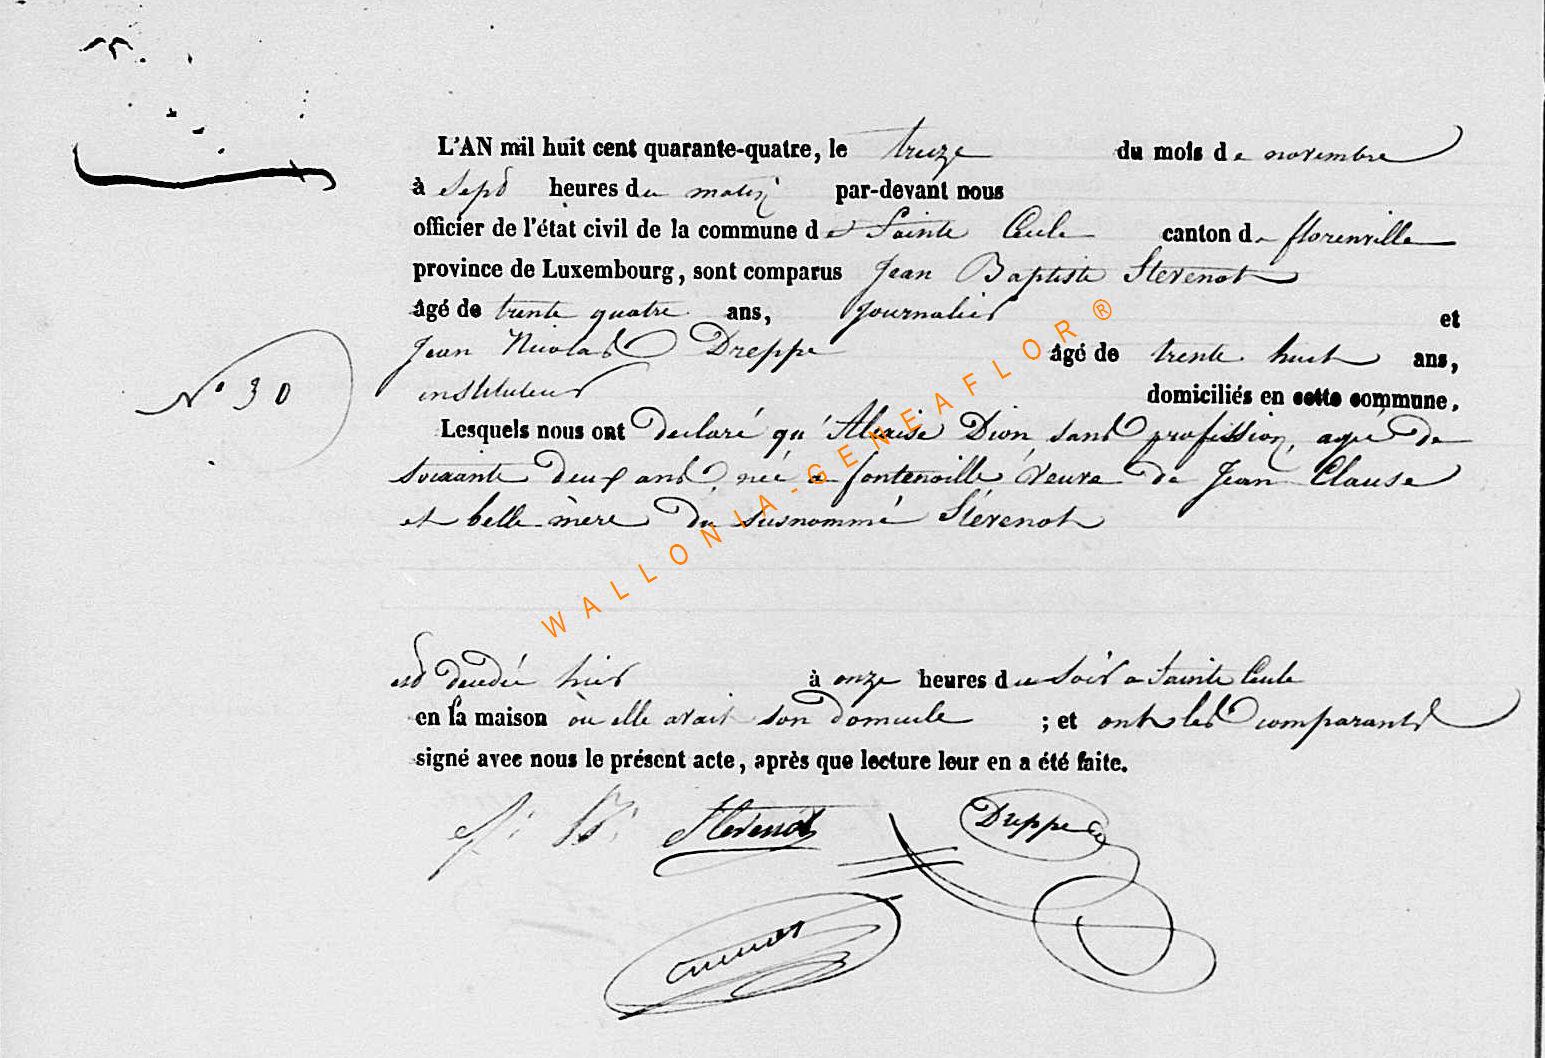 L'AN mil huit cent quarante-quatre, le treize du mois de novembre
à sept heures du matin par-devant nous
officier de l'état civil de la commune de Sainte Cecile canton de florenville
province de Luxembourg, sont comparus Jean Baptiste Stevenot
âgé de trente quatre ans, journalier et
Jean Nicolas Dreppe âgé de trente huit ans,
N° 30
instituteur domiciliés en cette commune.
Lesquels nous ont declaré qu' Dion, sans profession, agée de
soixante deux ans, née a fontenoille veuve de Jean Clause
et belle mère du susnommé Stévenot
est décédée hier à onze heures du soir a Sainte Cecile
en la maison où elle avait son domicile ; et ont les comparants
signé avec nous le présent acte, après que lecture leur en a été faite.
J. B. Stevenot Dreppe
WALLONIA-GENEAFLOR®